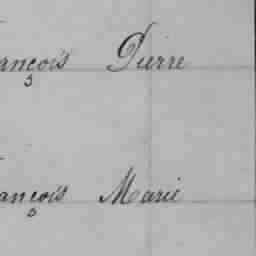 ançois Pierre
ançois Marie